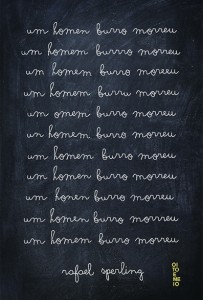 um homen burro morreu
um homem burro morreu
um homem burro morreu
um homem burru morreu
um omem burro morreu
un homem burro morreu
um homem buro morreu
um homem burro moreu
um honem burro morreu
um homem burro morrreu
um homem burro morreu
rafael sperling
OI
TO E
ME
IO